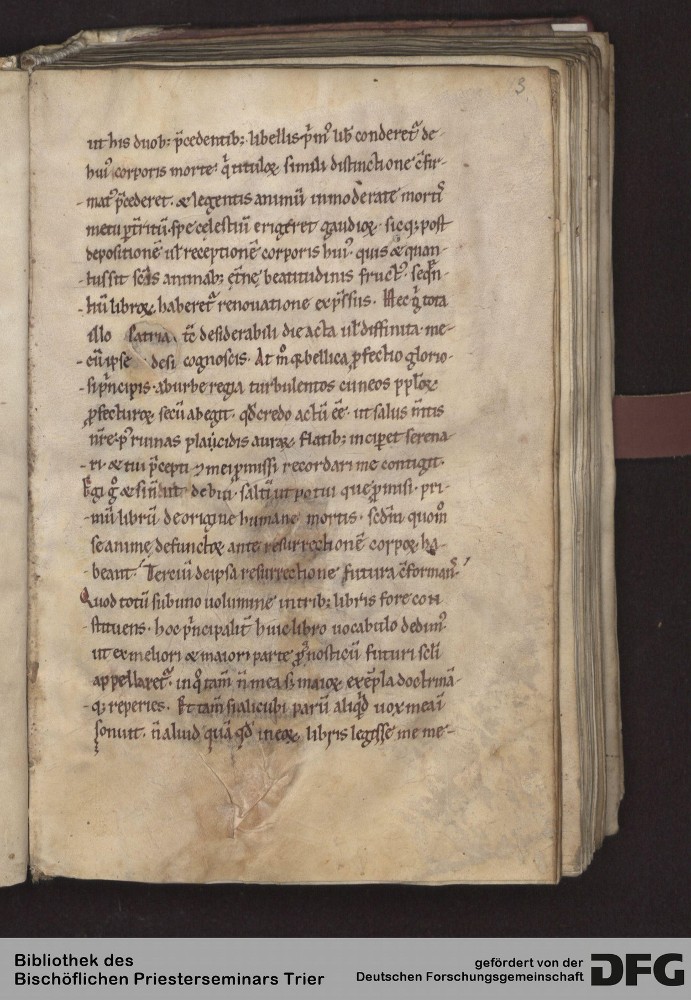 3
ut his duob; p̄cedentib; libellis p̄m᷒ ub̄ conderet᷒ de
hui᷒ corporis morte q̄ tituloꝝ simili distinctione c̄fir-
-mat᷒ p̄cederet. & legentis animū inmoderate morti᷒
metu ꝑt̄ritū spe cęlestiū erigeret gaudioꝝ. sicq; post
depositionē ul̄ receptionē corporis hui᷒. quis & quan-
-tus sit sc̄is animab; beatitudinis fruct᷒. seq̄n-
-tiū libroꝝ haberet᷒ renouatione exp̄ssus. Hęc g̊ tota
illo patria tc̄ desiderabili die acta ul̄ diffinita me-
-cū ipse desi cognoscis. At m̊ q̄ bellica ꝓfectio glorio-
-si p̄ncipis ab urbe regia turbulentos cuneos ppl̄oꝝ
ꝓfecturoꝝ secū abegit. qd̄ credo actū ēē. ut salus m̄tis
nr̄ę p᷒ ruinas placidis auraꝝ flatib; inciperet serena-
-ri. & tui p̄cepti ⁊ mei ꝓmissi recordari me contigit.
debui. saltī ut potui quę ꝓmisi. pri-
-mū librū de origine humanę mortis. scd̄m quom̊
se animę defunctoꝝ ante resurrectionē corpoꝝ ha-
-beant. Terciū de ipsa resurrectione futura c̄forman᷒.
Quod totū sub uno uolumine in trib; libris fore con
-stituens. hoc p̄ncipalit̄ huic libro uocabulo dedim᷒.
ut ex meliori & maiori parte ꝓnosticū futuri sc̄li
appellaret᷒. in q̊ tam̄ n̄ mea s; maioꝝ exēpla doctrinā-
-q; reperies. Et tam̄ si alicubi parū aliqd̄ uox mea
sonuit. n̄ aliud quā qd̄ in eoꝝ libris legisse me me-
Bibliothek des
Bischöflichen Priesterseminars Trier
gefördert von der
Deutschen Forschungsgemeinschaft
DFG